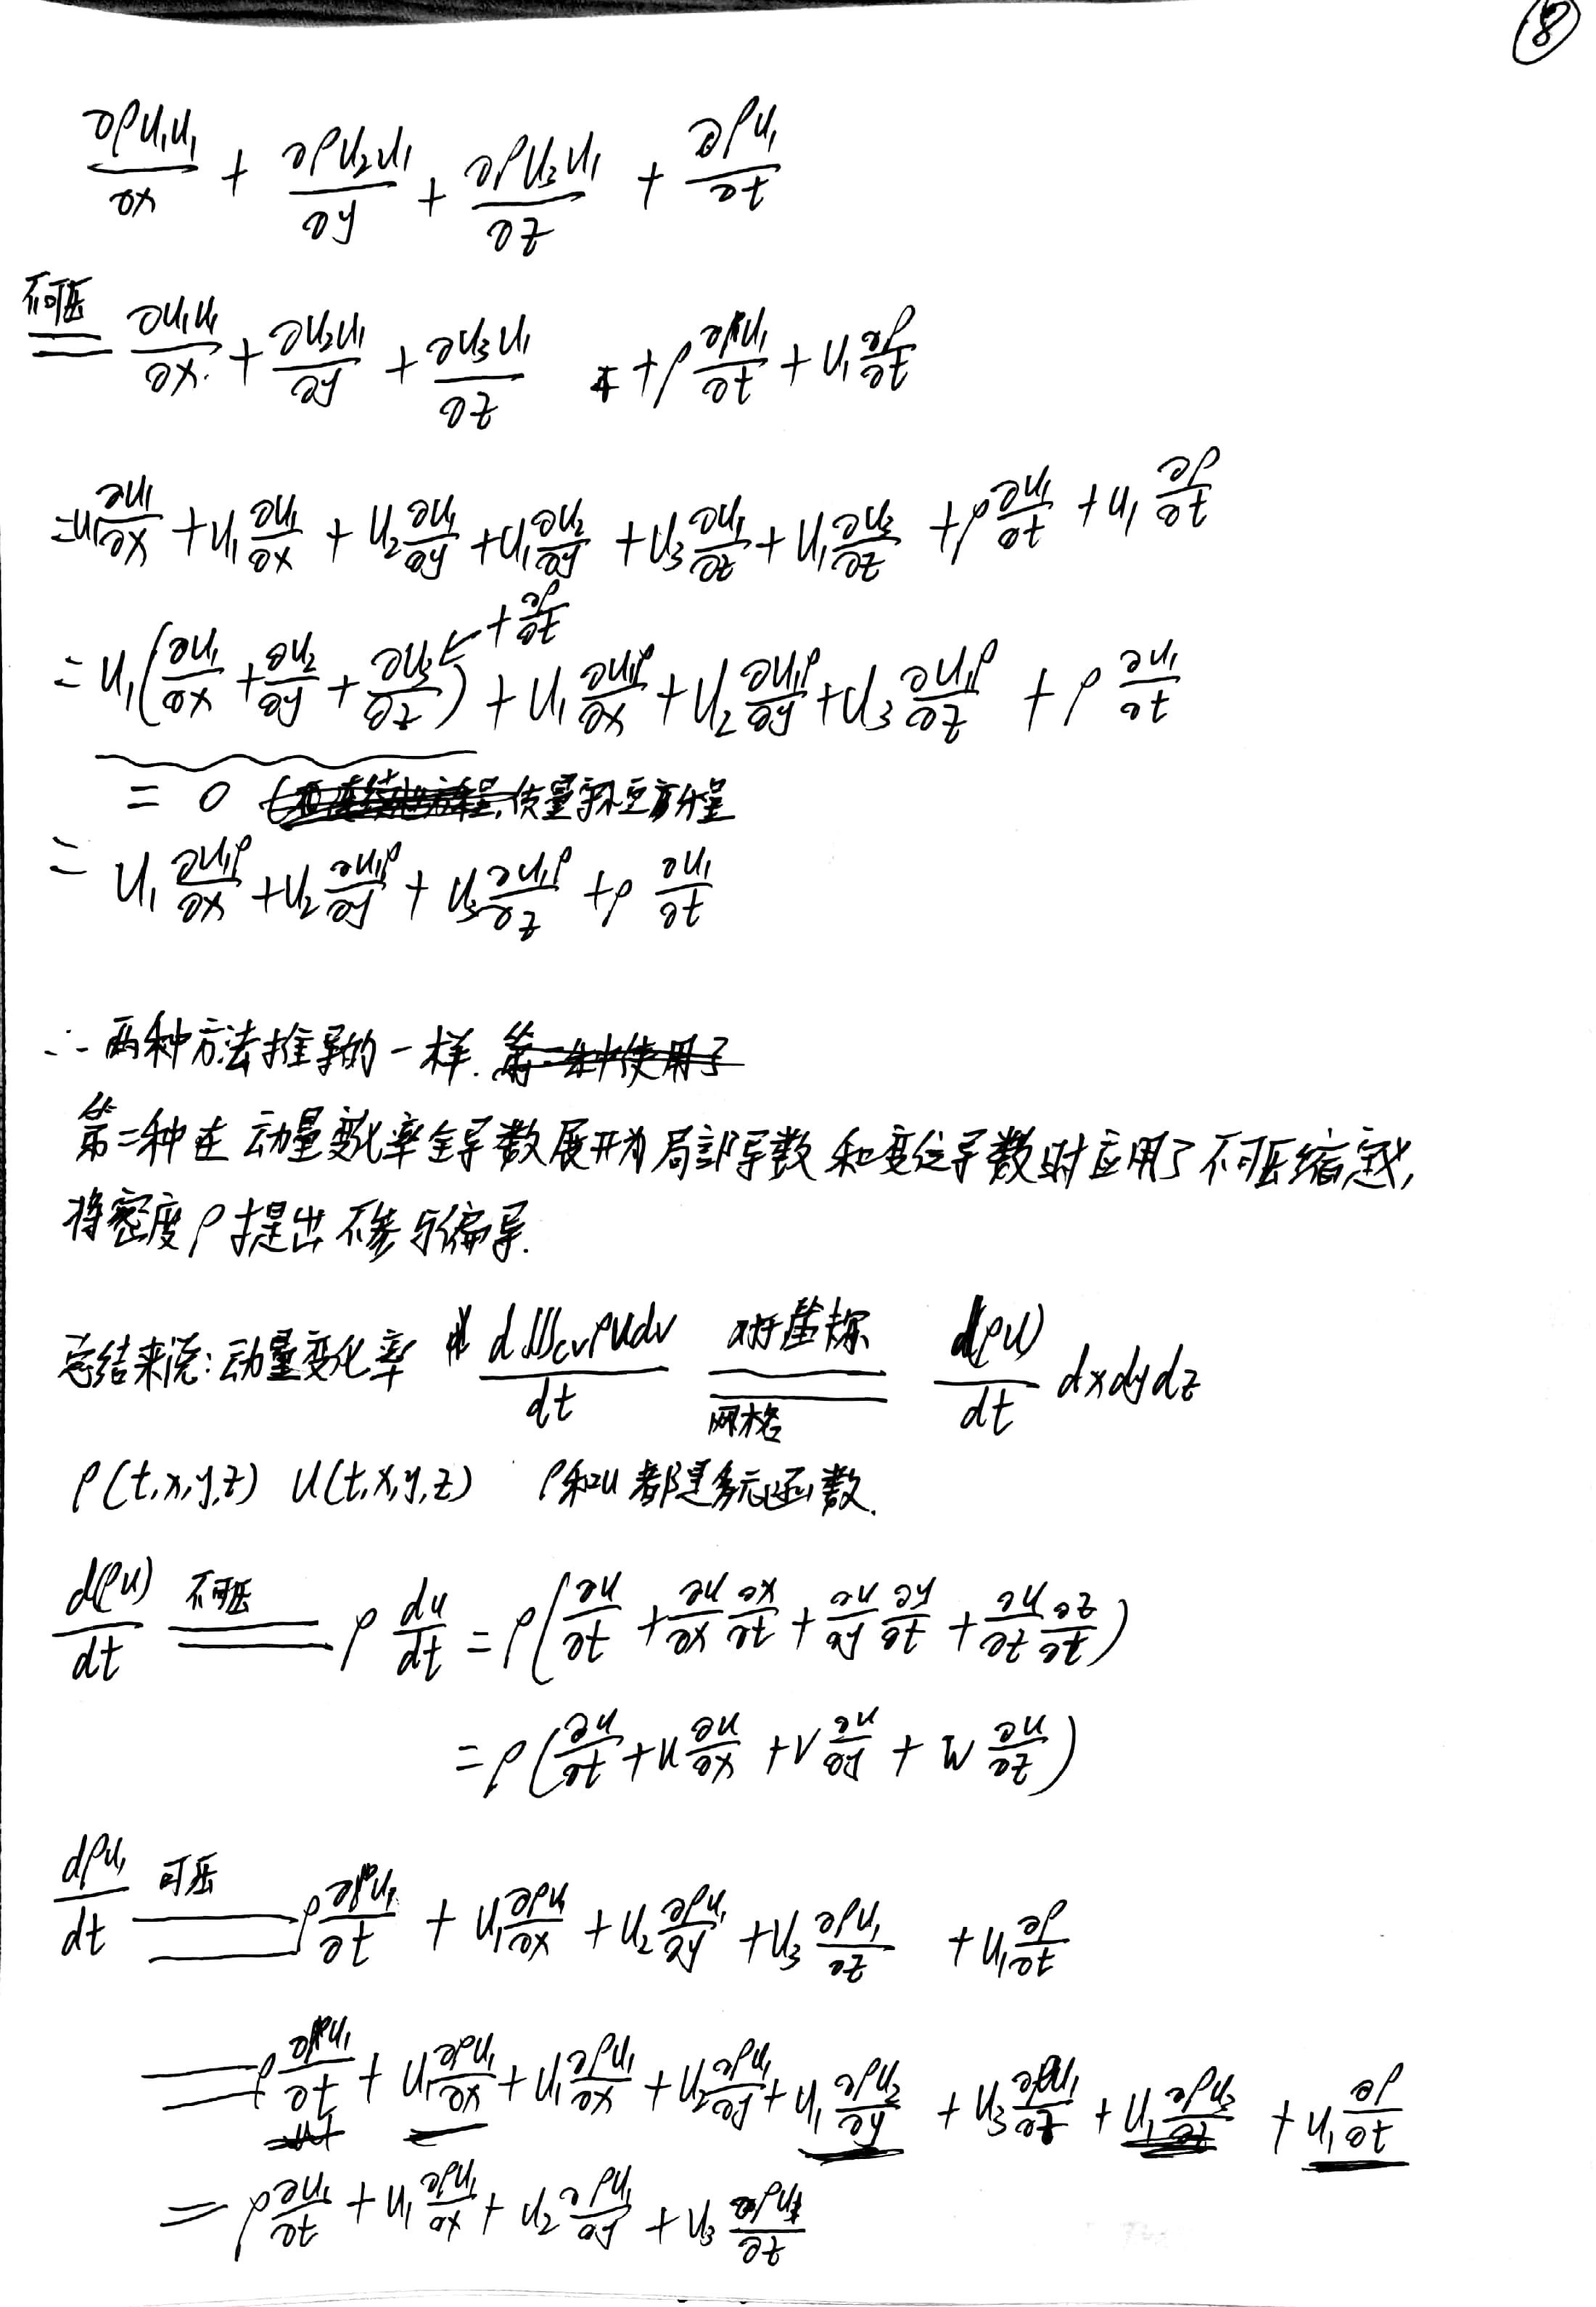 ⑧
∂ρu₁u₁/∂x + ∂ρu₂u₁/∂y + ∂ρu₃u₁/∂z + ∂ρu₁/∂t
不可压 = ∂u₁u₁/∂x + ∂u₂u₁/∂y + ∂u₃u₁/∂z + ρ ∂u₁/∂t + u₁ ∂ρ/∂t
= u₁ ∂u₁/∂x + u₁ ∂u₁/∂x + u₂ ∂u₁/∂y + u₁ ∂u₂/∂y + u₃ ∂u₁/∂z + u₁ ∂u₃/∂z + ρ ∂u₁/∂t + u₁ ∂ρ/∂t
= u₁(∂u₁/∂x + ∂u₂/∂y + ∂u₃/∂z + ∂ρ/∂t) + u₁ ∂u₁ρ/∂x + u₂ ∂u₁ρ/∂y + u₃ ∂u₁ρ/∂z + ρ ∂u₁/∂t
= 0 质量守恒方程
= u₁ ∂u₁ρ/∂x + u₂ ∂u₁ρ/∂y + u₃ ∂u₁ρ/∂z + ρ ∂u₁/∂t
∴ 两种方法推导的一样.
第二种在动量变化率全导数展开为局部导数和变位导数时应用了不可压缩假设,
将密度ρ提出不参与偏导.
总结来说: 动量变化率 d∭cv ρudv/dt = 网格 d(ρu)/dt dxdydz
ρ(t,x,y,z) u(t,x,y,z) ρ和u都是多元函数.
d(ρu)/dt 不可压 = ρ du/dt = ρ(∂u/∂t + ∂u/∂x ∂x/∂t + ∂u/∂y ∂y/∂t + ∂u/∂z ∂z/∂t)
= ρ(∂u/∂t + u ∂u/∂x + v ∂u/∂y + w ∂u/∂z)
dρu₁/dt 可压 = ρ ∂u₁/∂t + u₁ ∂ρu₁/∂x + u₂ ∂ρu₁/∂y + u₃ ∂ρu₁/∂z + u₁ ∂ρ/∂t
= ρ ∂u₁/∂t + u₁ ∂ρu₁/∂x + u₁ ∂ρu₁/∂x + u₂ ∂ρu₁/∂y + u₁ ∂ρu₂/∂y + u₃ ∂ρu₁/∂z + u₁ ∂ρu₃/∂z + u₁ ∂ρ/∂t
= ρ ∂u₁/∂t + u₁ ∂ρu₁/∂x + u₂ ∂ρu₁/∂y + u₃ ∂ρu₁/∂z